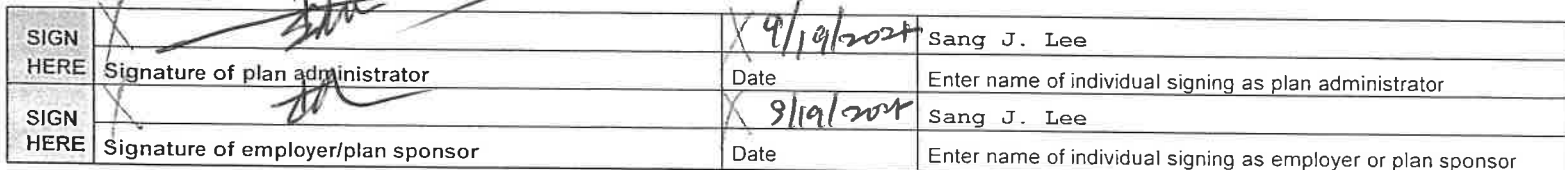 SIGN HERE
X 9/19/2024 Sang J. Lee
Signature of plan administrator Date Enter name of individual signing as plan administrator
SIGN HERE
X 9/19/2024 Sang J. Lee
Signature of employer/plan sponsor Date Enter name of individual signing as employer or plan sponsor